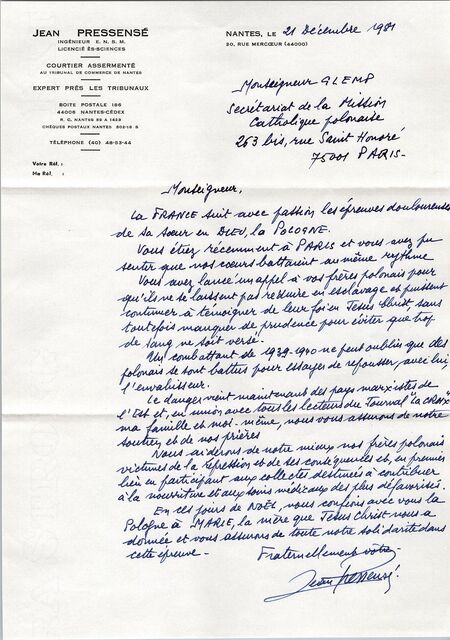 JEAN PRESSENSÉ
INGÉNIEUR E. N. S. M.
LICENCIÉ ÈS-SCIENCES
COURTIER ASSERMENTÉ
AU TRIBUNAL DE COMMERCE DE NANTES
EXPERT PRÈS LES TRIBUNAUX
BOITE POSTALE 186
44006 NANTES-CÉDEX
R. C. NANTES 59 A 1423
CHÈQUES POSTAUX NANTES 502-18 S
TÉLÉPHONE (40) 48-53-44
Votre Réf. :
Ma Réf. :
NANTES, LE 21 Décembre 1981
20, RUE MERCŒUR (44000)
Monseigneur GLEMP
Secrétariat de la Mission
Catholique polonaise
263 bis, rue Saint Honoré
75001 PARIS-
Monseigneur,
La FRANCE suit avec passion les épreuves douloureuses
de sa sœur en DIEU, la POLOGNE.
Vous étiez récemment à PARIS et vous avez pu
sentir que nos cœurs battaient au même rythme
Vous avez lancé un appel à vos frères polonais pour
qu'ils ne se laissent pas réduire en esclavage et puissent
continuer à témoigner de leur foi en Jésus Christ sans
toutefois manquer de prudence pour éviter que trop
de sang ne soit versé.
Un combattant de 1939-1940 ne peut oublier que des
polonais se sont battus pour essayer de repousser, avec lui,
l'envahisseur.
Le danger vient maintenant des pays marxistes de
l'Est et, en union avec tous les lecteurs du Journal "La CROIX"
ma famille et moi-même, nous vous assurons de notre
soutien et de nos prières
Nous aiderons de notre mieux nos frères polonais
victimes de la répression et de ses conséquences et, en premier
lieu en participant aux collectes destinées à contribuer
à la nourriture et aux soins médicaux des plus défavorisés.
En ces jours de NOËL, nous confions avec vous la
Pologne à MARIE, la mère que Jésus Christ nous a
donnée et vous assurons de toute notre solidarité dans
cette épreuve-
Fraternellement vôtre-
Jean Pressensé